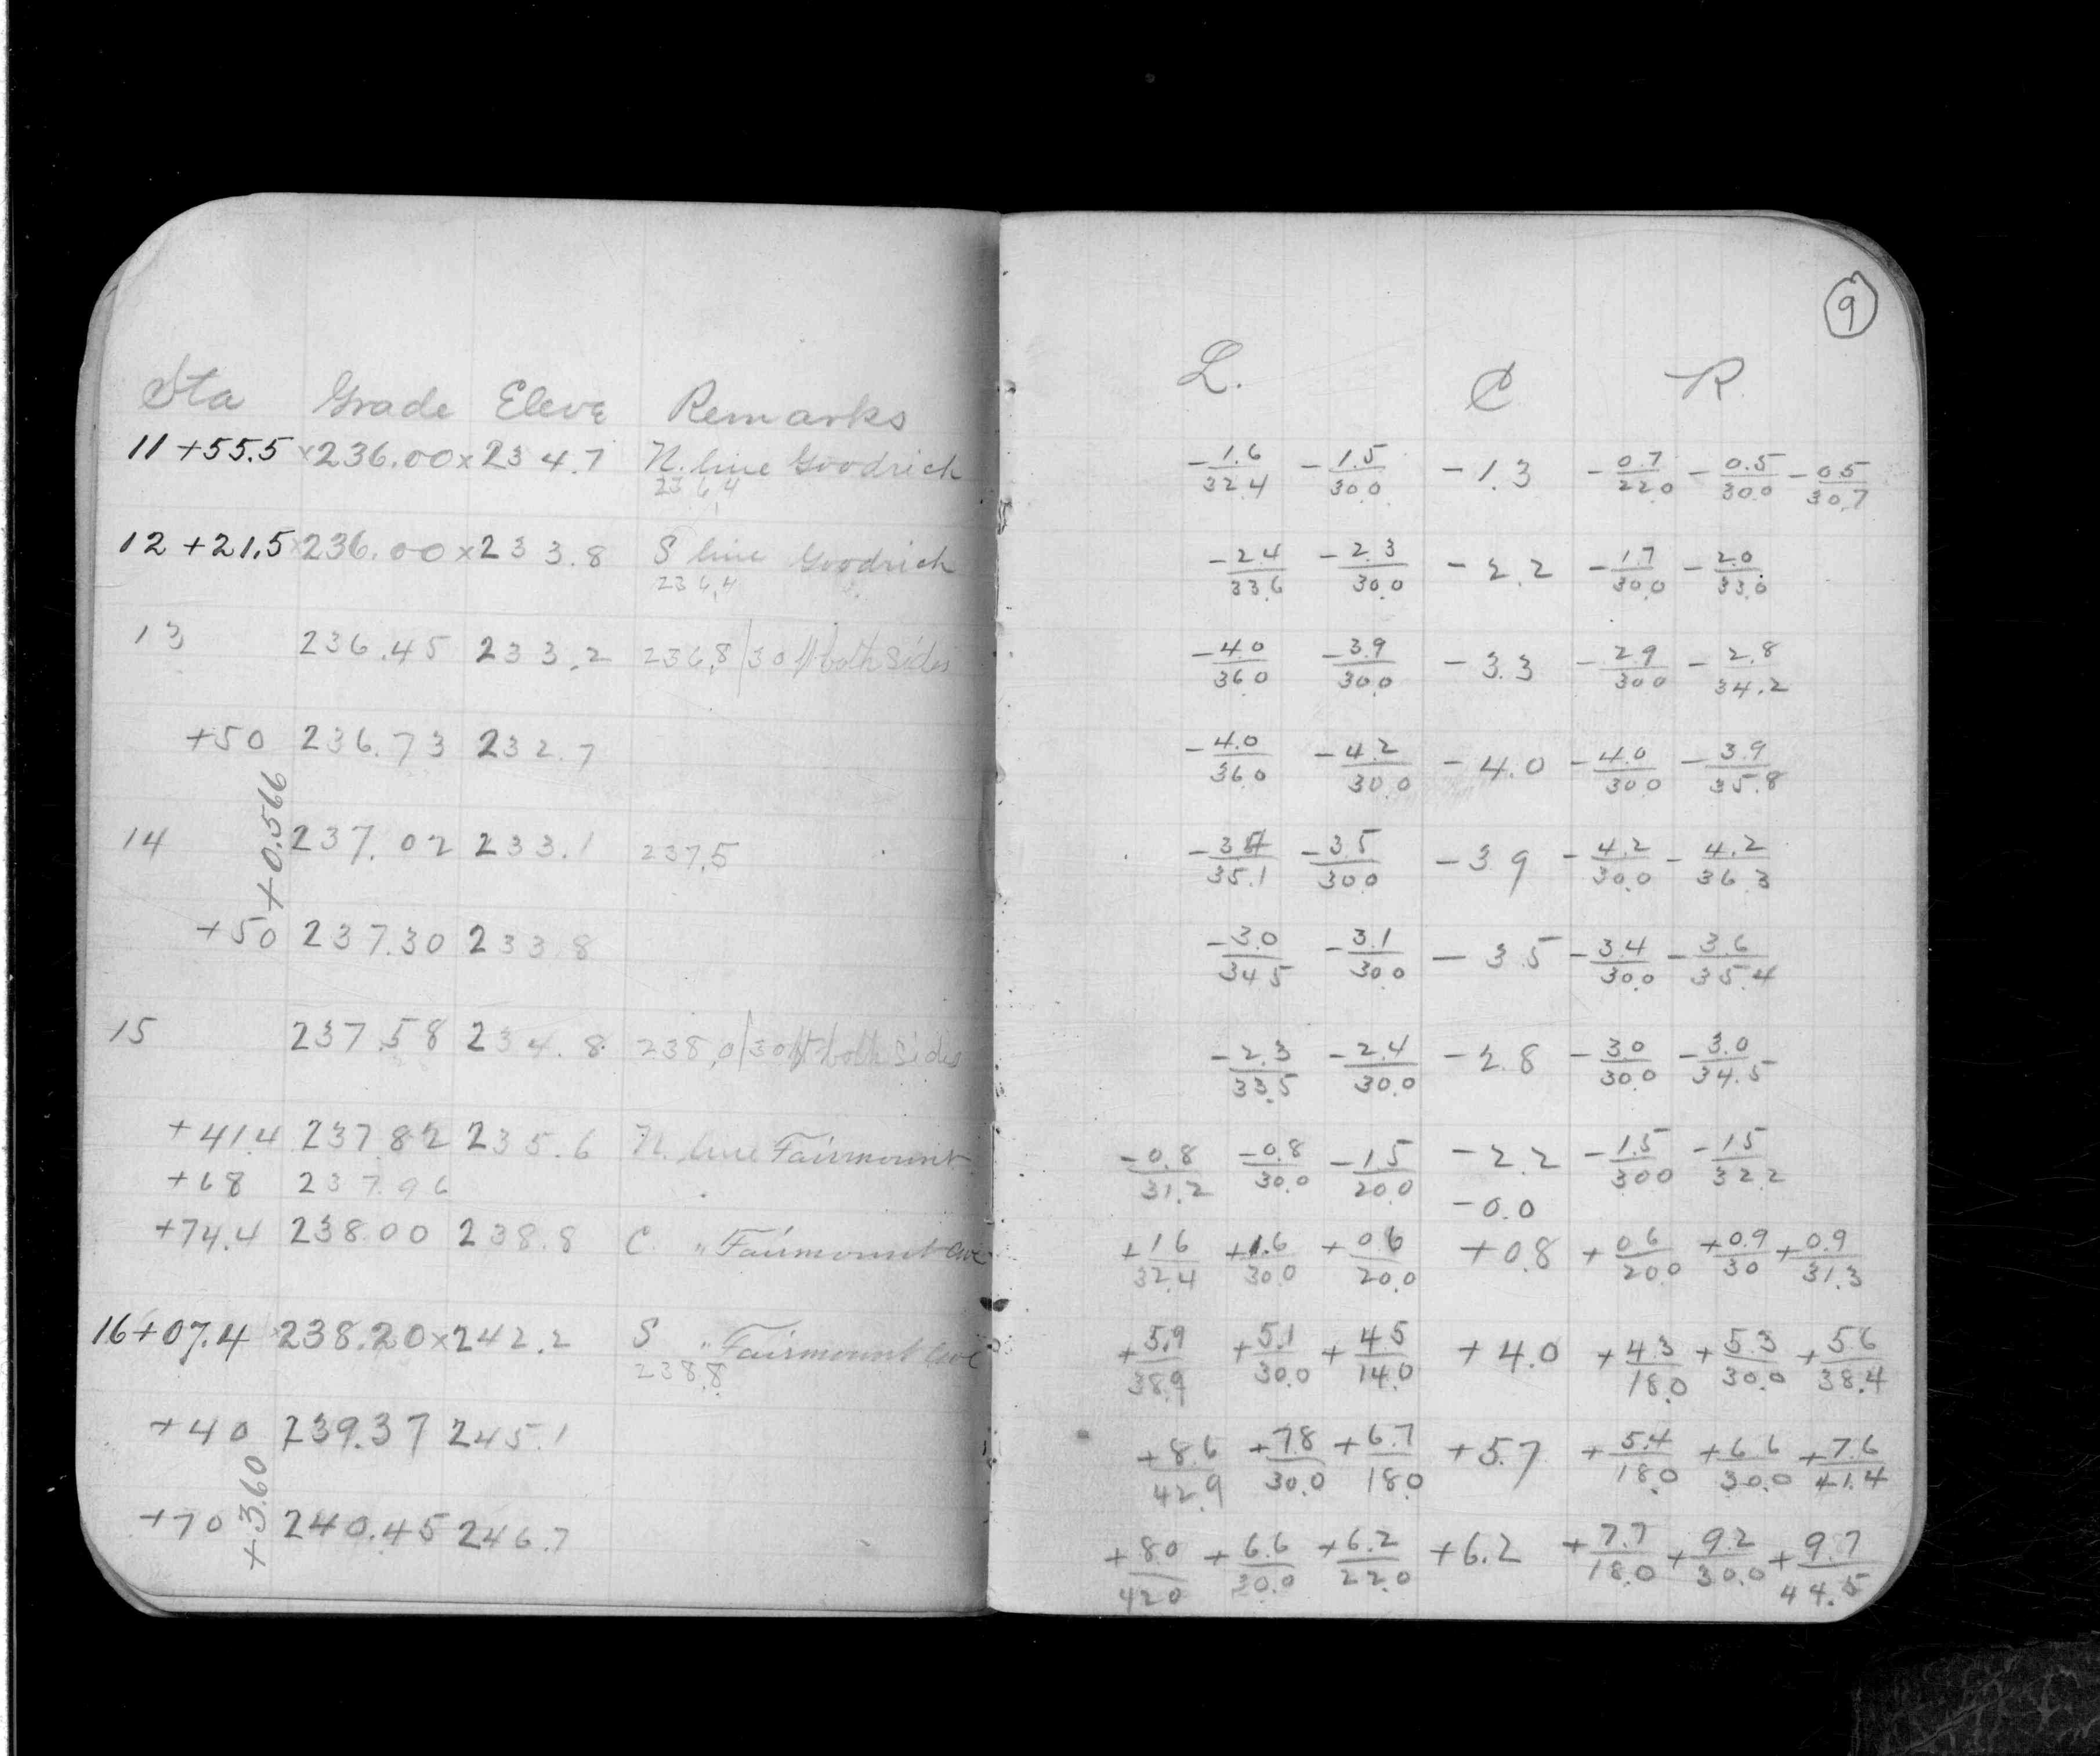 Sta Grade Eleve Remarks
11 +55.5 x236.00 x234.7 N. line Goodrich
236.4
12 +21.5 x236.00 x233.8 S line Goodrich
236.4
13 236.45 233.2 236.8 / 30 ft both sides
+50 236.73 232.7
+0.566
14 237.02 233.1 237.5
+50 237.30 233.8
15 237.58 234.8 238.0 / 30 ft both sides
+41.4 237.82 235.6 N. line Fairmount
+68 237.96
+74.4 238.00 238.8 C. " Fairmount ave
16+07.4 x238.20 x242.2 S " Fairmount ave
238.8
+40 239.37 245.1
+3.60
+70 240.45 246.7
9
L. ₵ R
-1.6/32.4 -1.5/30.0 -1.3 -0.7/22.0 -0.5/30.0 -0.5/30.7
-2.4/33.6 -2.3/30.0 -2.2 -1.7/30.0 -2.0/33.0
-4.0/36.0 -3.9/30.0 -3.3 -2.9/30.0 -2.8/34.2
-4.0/36.0 -4.2/30.0 -4.0 -4.0/30.0 -3.9/35.8
-3.4/35.1 -3.5/30.0 -3.9 -4.2/30.0 -4.2/36.3
-3.0/34.5 -3.1/30.0 -3.5 -3.4/30.0 -3.6/35.4
-2.3/33.5 -2.4/30.0 -2.8 -3.0/30.0 -3.0/34.5
-0.8/31.2 -0.8/30.0 -1.5/20.0 -2.2 -1.5/30.0 -1.5/32.2
-0.0
+1.6/32.4 +1.6/30.0 +0.6/20.0 +0.8 +0.6/20.0 +0.9/30 +0.9/31.3
+5.9/38.9 +5.1/30.0 +4.5/14.0 +4.0 +4.3/18.0 +5.3/30.0 +5.6/38.4
+8.6/42.9 +7.8/30.0 +6.7/18.0 +5.7 +5.4/18.0 +6.6/30.0 +7.6/41.4
+8.0/42.0 +6.6/30.0 +6.2/22.0 +6.2 +7.7/18.0 +9.2/30.0 +9.7/44.5